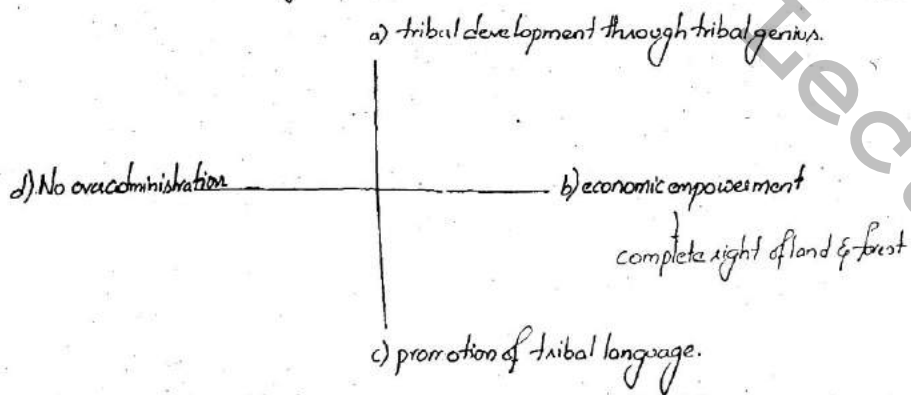 a) tribal development through tribal genius.
d) No overadministration
b) economic empowerment
complete right of land & forest
c) promotion of tribal language.